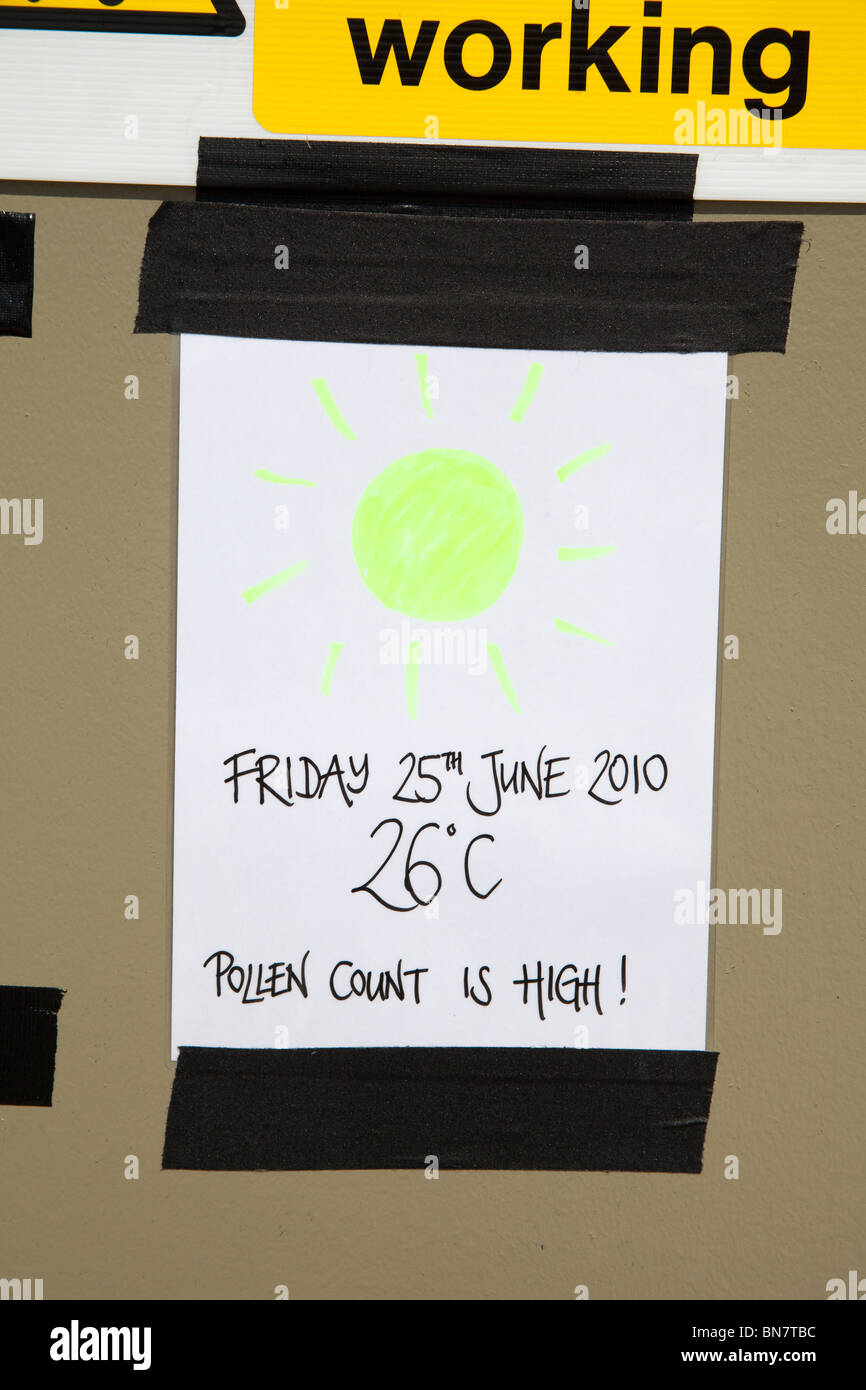 working
FRIDAY 25TH JUNE 2010
26°C
POLLEN COUNT IS HIGH!
alamy
alamy
Image ID: BN7TBC
www.alamy.com